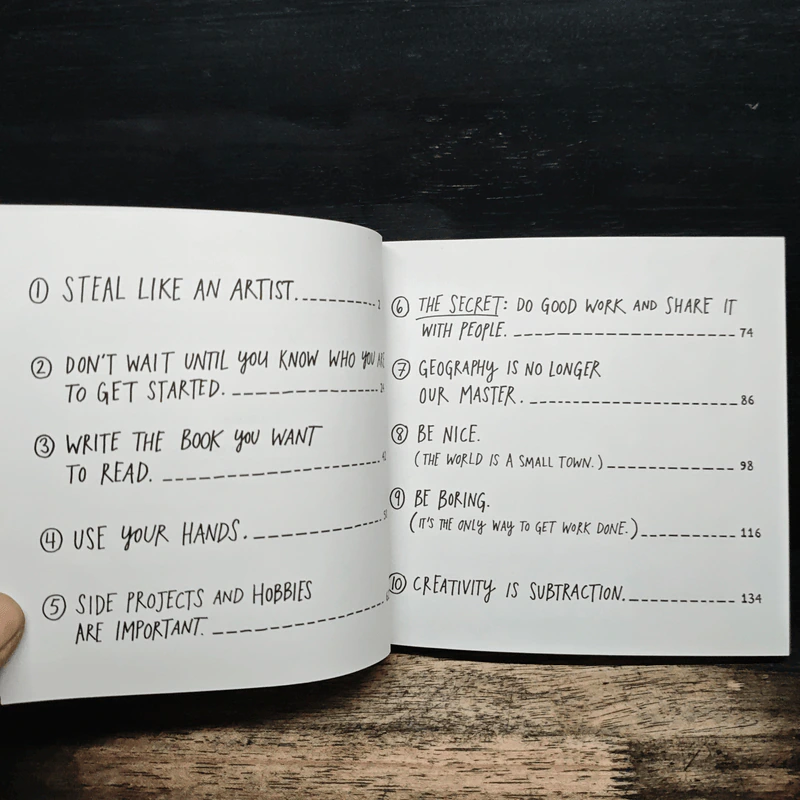 ① STEAL LIKE AN ARTIST.
② DON'T WAIT UNTIL YOU KNOW WHO YOU ARE
TO GET STARTED.
③ WRITE THE BOOK YOU WANT
TO READ.
④ USE YOUR HANDS.
⑤ SIDE PROJECTS AND HOBBIES
ARE IMPORTANT.
⑥ THE SECRET: DO GOOD WORK AND SHARE IT
WITH PEOPLE. 74
⑦ GEOGRAPHY IS NO LONGER
OUR MASTER. 86
⑧ BE NICE.
(THE WORLD IS A SMALL TOWN.) 98
⑨ BE BORING.
(IT'S THE ONLY WAY TO GET WORK DONE.) 116
⑩ CREATIVITY IS SUBTRACTION. 134